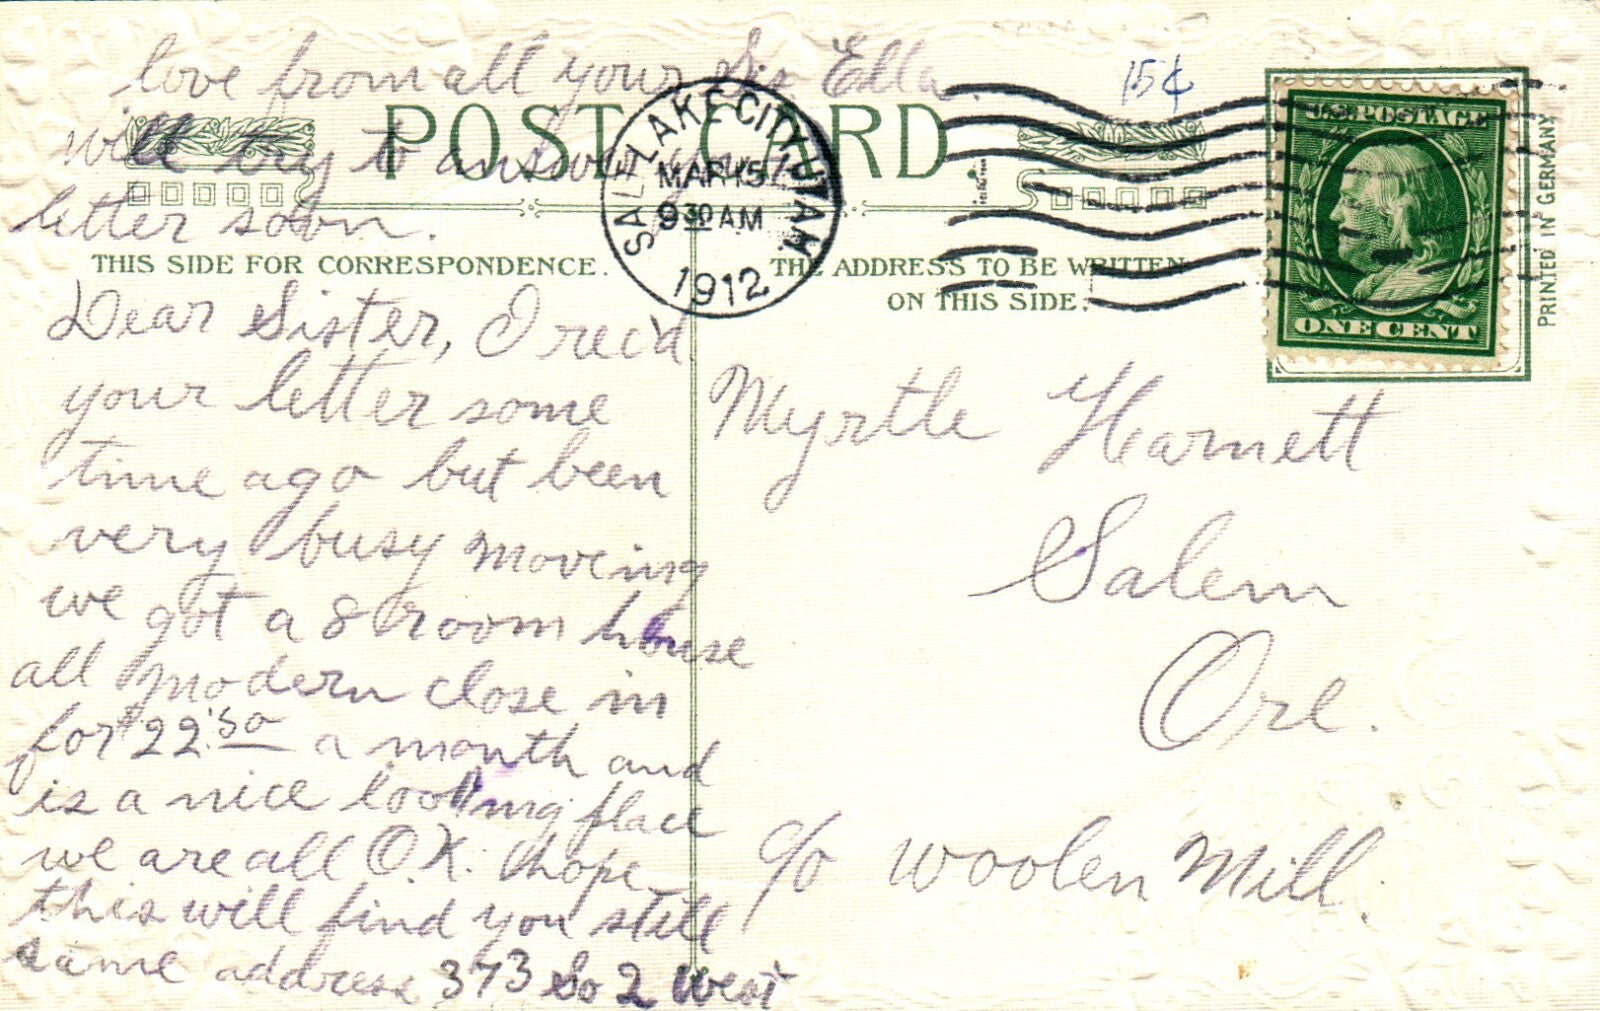 love from all your Sis Ella.
will try to answer your
letter soon.
POST CARD
15¢
SALT LAKE CITY, UTAH.
MAR 15
9 30 AM
1912
U.S. POSTAGE
ONE CENT
PRINTED IN GERMANY
THIS SIDE FOR CORRESPONDENCE.
THE ADDRESS TO BE WRITTEN
ON THIS SIDE.
Dear Sister, I rec'd
your letter some
time ago but been
very busy moving
we got a 8 room house
all modern close in
for $22.50 a month and
is a nice looking place
we are all O.K. hope
this will find you still
same address 373 So 2 West
Myrtle Harnett
Salem
Ore.
c/o Woolen Mill.